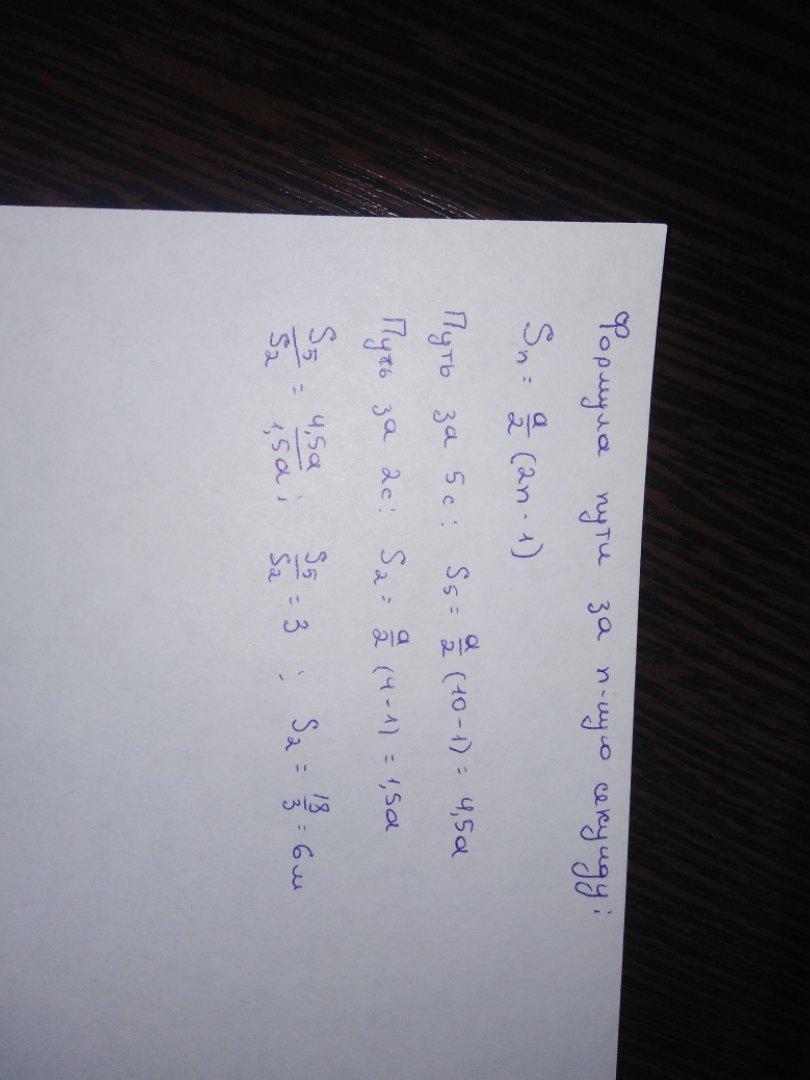 Формула пути за n-ную секунду:
Sn = a/2 (2n - 1)
Путь за 5с: S5 = a/2 (10-1) = 4,5a
Путь за 2с: S2 = a/2 (4-1) = 1,5a
S5/S2 = 4,5a/1,5a; S5/S2 = 3 ; S2 = 18/3 = 6м